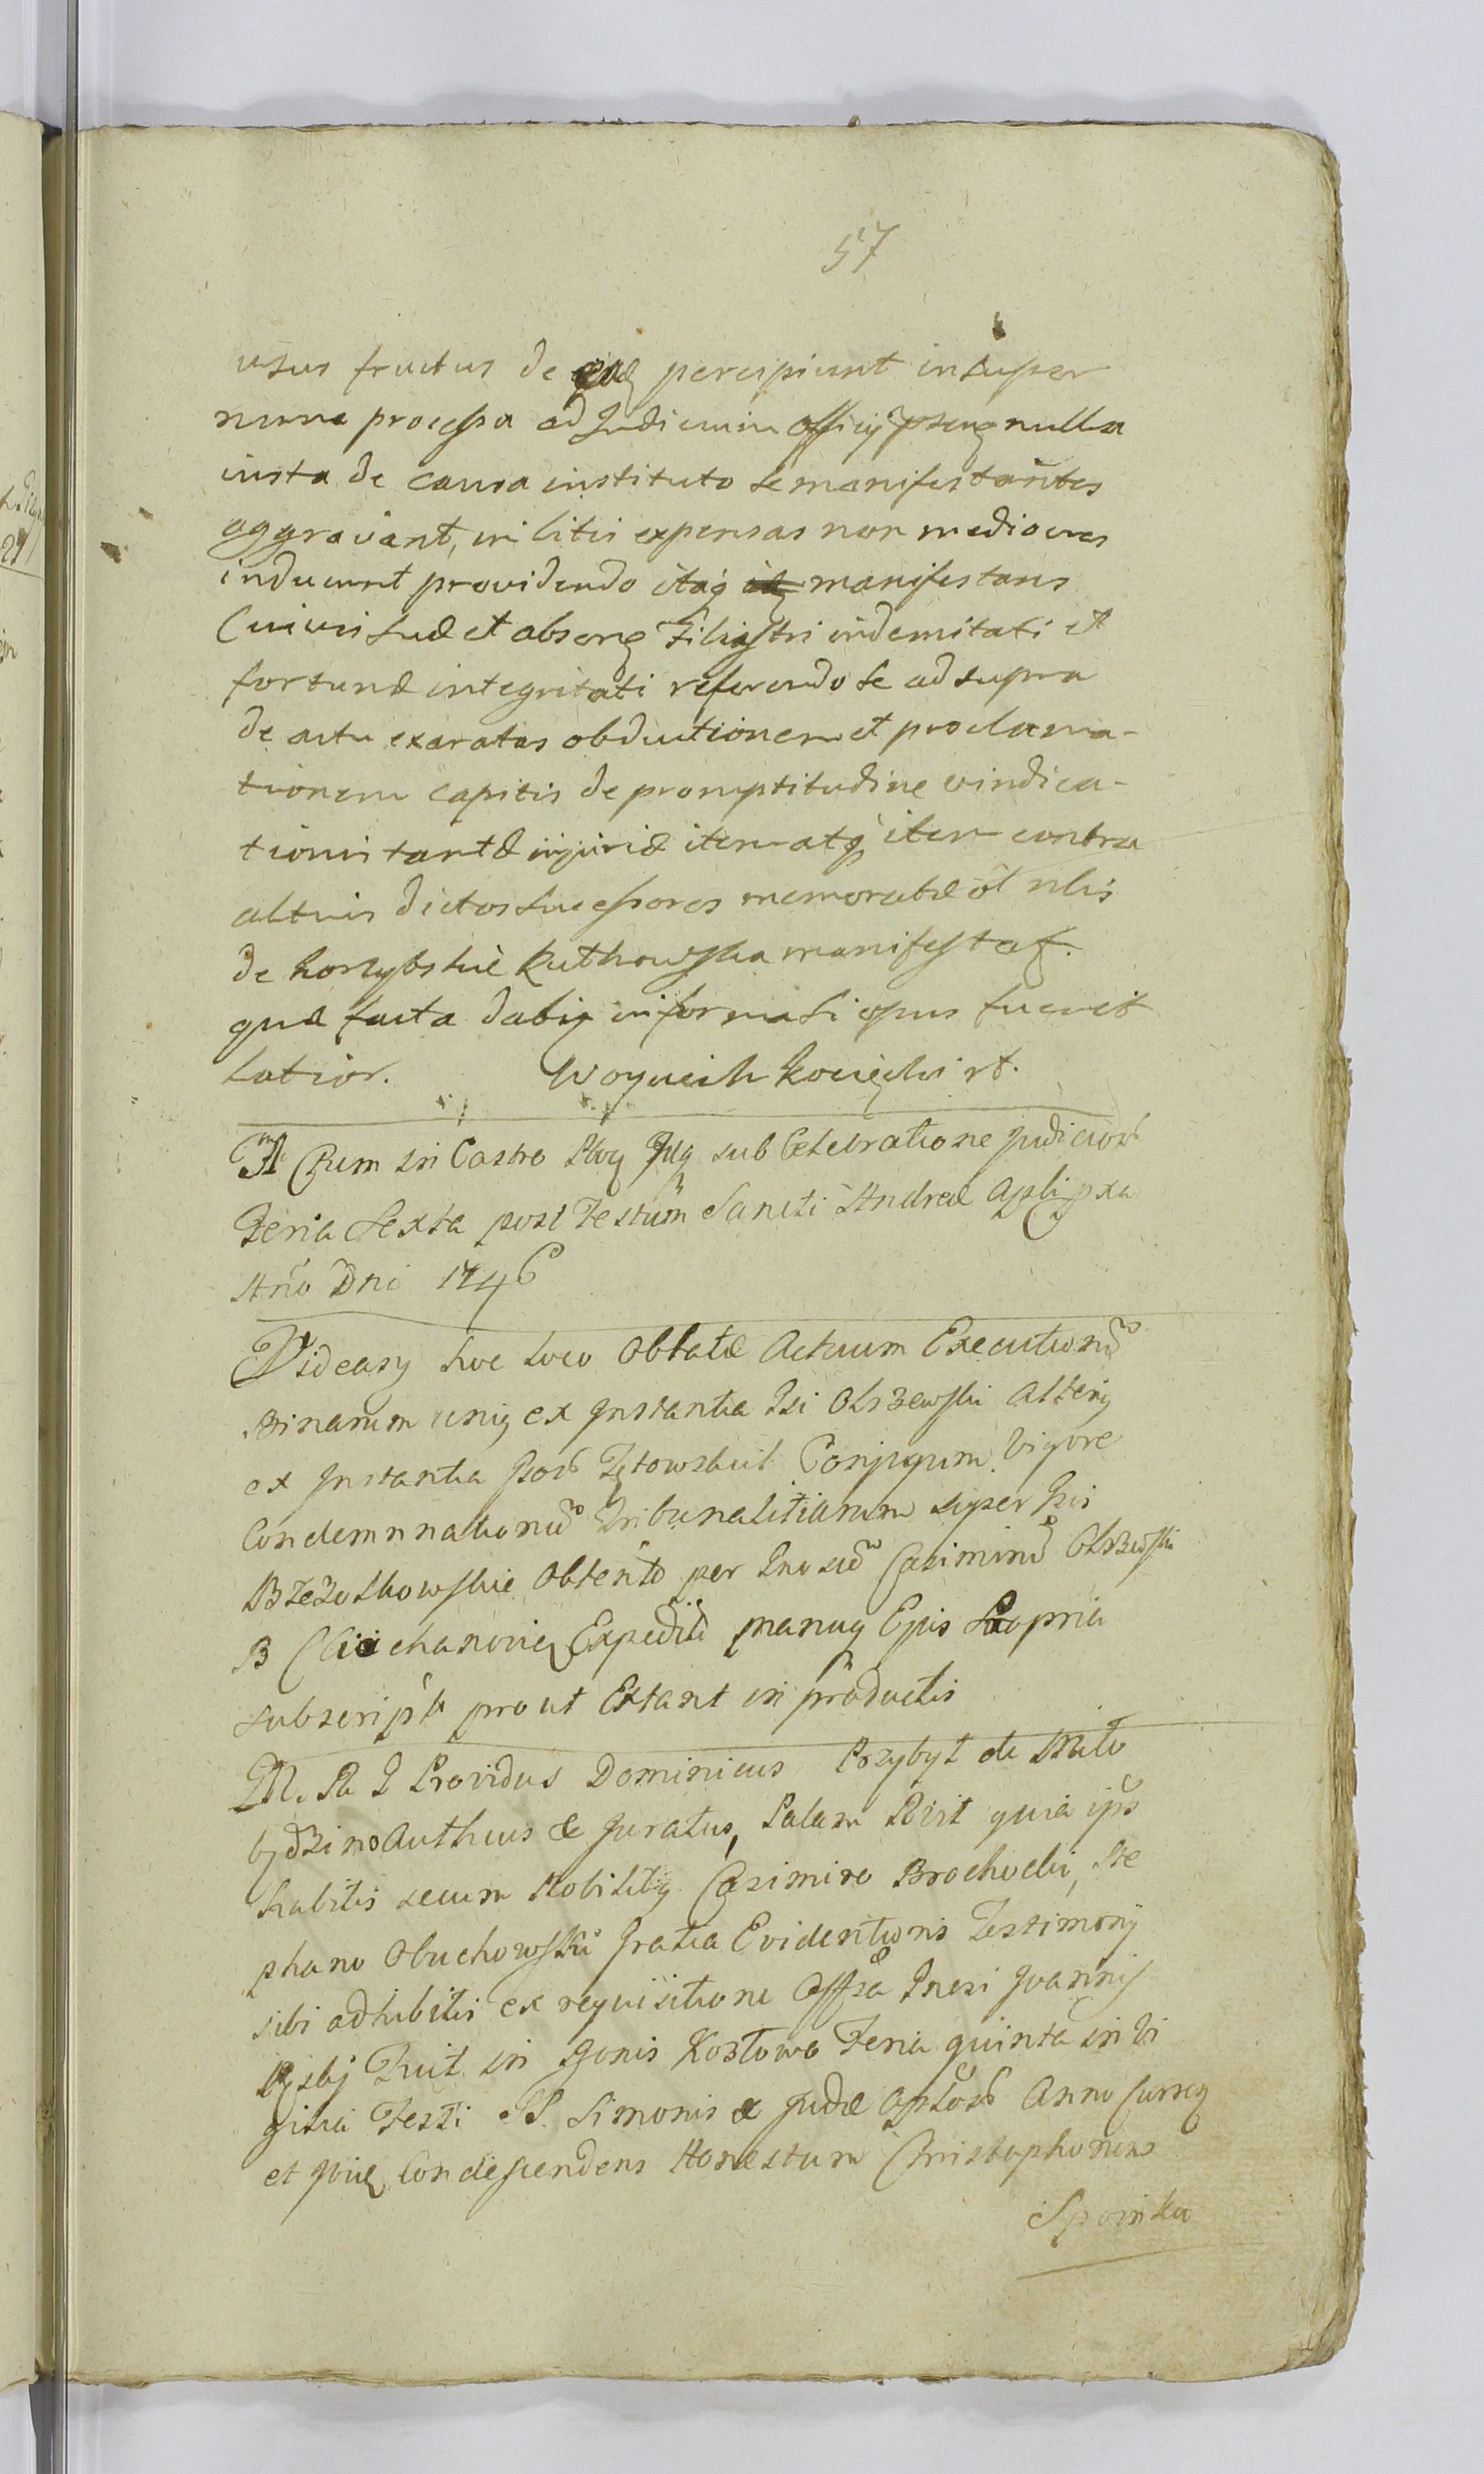 57
usus fructus de eaq percipiunt insuper
nunc processu ad Judicium officij pseng nulla
iusta de causa instituto se manifestantes
aggravant, in litis expensas non mediocres
inducunt providendo itaq manifestans
Cuivis suæ et absong Filiastri indemnitati et
fortunæ integritati referendo se ad supra
de actu exaratas obductionem et proclama-
tionem capitis de promptitudine vindica-
tionis tantæ injuriæ item atq item contra
altius dictos successores memoratæ ol nlis
de Korzybskie Ruthowska manifestat.
quæ facta dabiq informati opus fuerit
latior. Woyciech
Actum in Castro sub Celebratione Judicior
Feria Sexta post Festum Sancti Andreæ Apli pxa
Ano Dni 1746
Videany hoc loco Oblatæ Actuum Executionu
Binarum uniq ex Instantia Gsi Olszewski Alteriq
ex Instantia Conjugum Vigore
Condemnnationu Tribunalitiarum super Gsi
Brzezoskowskie Obtento per Gnosu Casimiru Olszewski
B Ciechanovieq Expediti manuq Ejus Propria
subscripta prout Extant in productis
M. R G Providus Dominicus Przybyt de
Authcus & Juratus, Palam Rcit quia ips
habitis secum Nobilibq Casimiro Brochocki, Ste
phano Obuchowski Gratia Evidentioris Testimonij
sibi adhibitis ex requisitione Gnesi Joannis
Fuit in Bonis Kostowo Feria quinta in Vi
gilia Festi SS. Simonis & Judæ Aptlor Anno Curreq
et ibiq Condescendens Honestum Christophorum